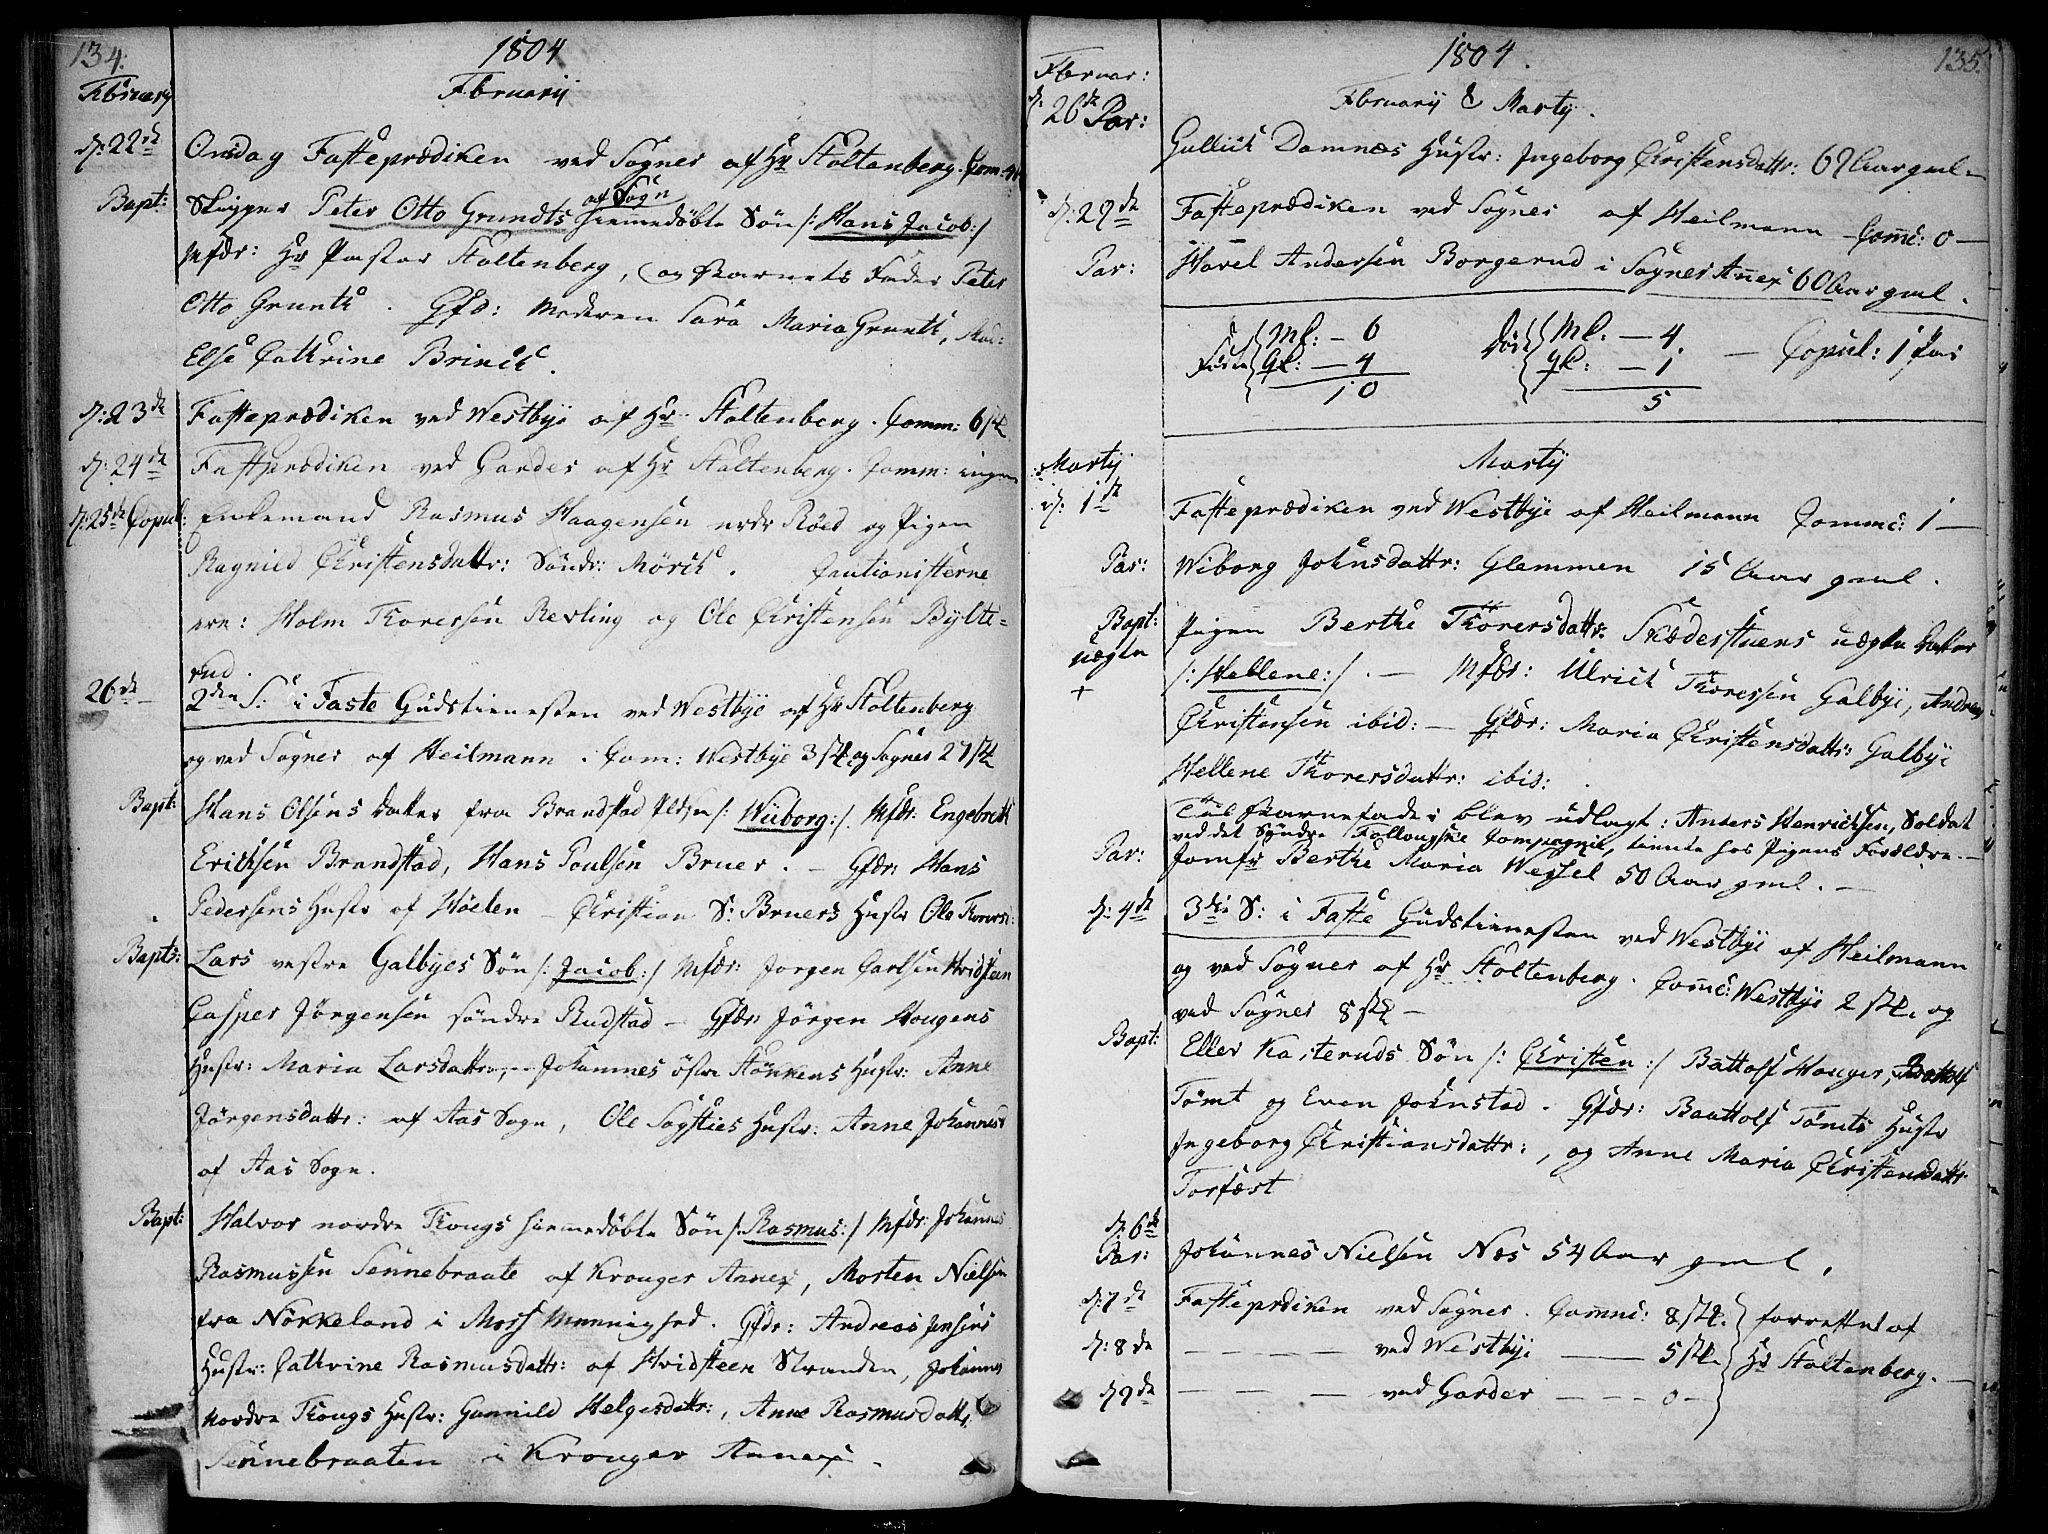 134.
1804
Februarij
Februarij
d: 22de Onsdag Fasteprædiken ved Sogner af Hr Stoltenberg. Com:
Bapt: Skipper Peter Otto Grundts af Sogn hiemmedøbte Søn /: Hans Jacob :/
Mfdr: Hr Pastor Stoltenberg, og Barnets Fader Peter
Otto Grunth. Gfd: Moderen Sara Maria Grunth, Mad:
Else Cathrine Brinck.
d: 23de Fasteprædiken ved Westbye af Hr Stoltenberg. Comm: 6 stk
d: 24de Fasteprædiken ved Garder af Hr Stoltenberg. Comm: ingen
d: 25de Copul: Enkemand Rasmus Haagensen nedr Røed og Pigen
Ragnild Christensdattr: Søndr: Mørck. Cautionisterne
ere: Holm Thoresen Revling og Ole Christensen Bylte-
rud.
26de 2den S: i Faste Gudstienesten ved Westbye af Hr Stoltenberg
og ved Sogner af Heilmann. Com: Westbye 3 stk og Sogner 27 stk
Bapt: Hans Olsens datter fra Brandstad Pldsn /: Wiborg :/. Mfdr: Engebreth
Erichsen Brandstad, Hans Poulsen Bruer. - Gfdr: Hans
Pedersens Hustr af Høelen Christian S: Bruers Hustr Ole Thorers:
Bapts: Lars vestre Galbyes Søn /: Jacob :/ Mfdr: Jorgen Carlsen Hvidsteen
Casper Jørgensen søndre Rudstad - Gfdr: Jørgen Hougens
Hustr: Maria Larsdattr, Johannes østre Støkkens Hustr: Anne
Jørgensdattr: af Aas Sogn, Ole Sogsties Hustr: Anne Johannesd
af Aas Sogn.
Bapt: Halvor nordre Thougs hiemmedøbte Søn /: Rasmus :/ Mfdr: Johannes
Rasmussen Sennebraate af Kroger Annex, Morten Nielsen
fra Nøkkeland i Moss Menighed. Gfdr: Andreas Jensens
Hustr: Cathrine Rasmusdattr: af Hvidsteen Stranden, Johannes
nordre Thougs Hustr: Gunnild Helgesdattr:, Anne Rasmusdattr
Sennebraaten i Kroger Annex.
135.
1804.
Februarij & Martij.
Februar:
d: 26de Par: Gullick Damnæs Hustr: Ingeborg Christensdattr: 69 Aar gml.
d: 29de Fasteprædiken ved Sogner af Heilmann - Comc: 0 -
Par: Havel Andersen Borgerud i Sogner Annex 60 Aar gml.
Fødte { Ml: - 6 Døde { Ml: - 4. - Copul: 1 Par
Qk: - 4 qk: - 1
10 5
Martij
Martij
d: 1de Fasteprædiken ved Westbye af Heilmann Commc: 1 -
Par: Wiborg Johnsdattr: Glemmen 15 Aar gml.
Bapt: Pigen Berthe Thorersdattr: Skædestuens uægte datter
uægte /: Hellene :/. - Mfdr: Ulrick Thoresen Galbye, Andreas
+ Christensen ibid: - Gfdr: Maria Christensdattr: Galbye
Hellene Thorersdattr: ibid:
Til Barnefader blev udlagt: Anders Henrichsen, Soldat
ved det Søndre Follougske Compagnie, tiente hos Pigens Forældre. -
Par: Jomfr Berthe Maria Wessel 50 Aar gml. -
d: 4de 3die S: i Faste Gudstienesten ved Westbye af Heilmann
og ved Sogner af Hr Stoltenberg. Comc: Westbye 2 stk. og
ved Sogner 8 stk -
Bapt: Eller Kasteruds Søn /: Christen :/ Battolf Houger, Battolf
Tømt og Even Johnstad. Gfdr: Baattolf Tømts Hustr
Ingeborg Christiansdattr:, og Anne Maria Christensdattr
Torfæst
d: 6de
Par: Johannes Nielsen Næs 54 Aar gml.
d: 7de Fasteprdiken ved Sogner. Comc: 8 stk. } forrettet af
d: 8de - - - - ved Westbye - 5 stk. } Hr Stoltenberg. -
d: 9de - - - ved Garder - - - 0 -